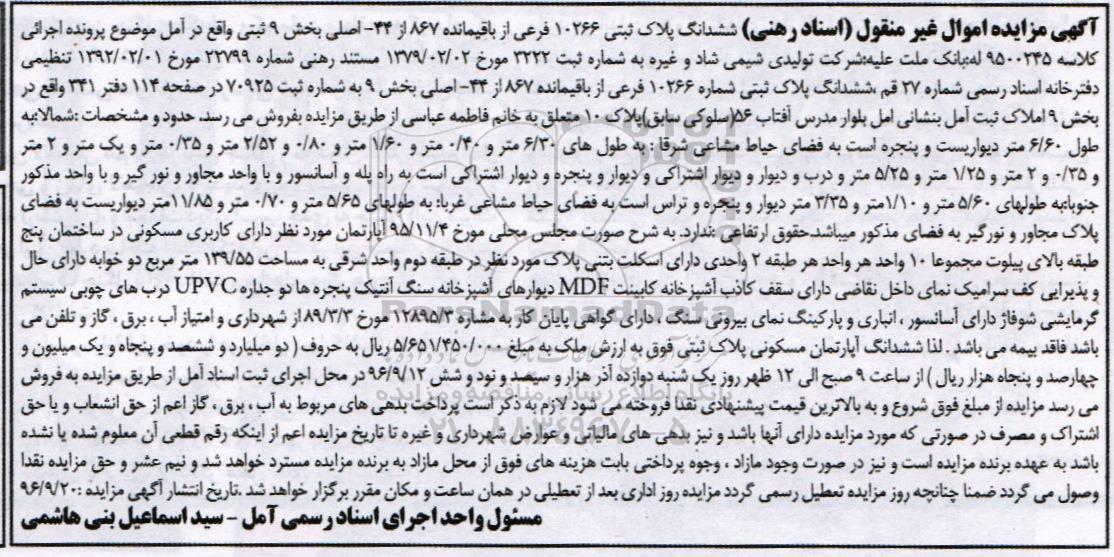 آگهی مزایده اموال غیر منقول (اسناد رهنی) ششدانگ پلاک ثبتی ۱۰۲۶۶ فرعی از باقیمانده ۸۶۷ از ۴۴- اصلی بخش ۹ ثبتی واقع در آمل موضوع پرونده اجرائی
کلاسه ۹۵۰۰۲۴۵ له:بانک ملت علیه:شرکت تولیدی شیمی شاد و غیره به شماره ثبت ۳۲۲۲ مورخ ۱۳۷۹/۰۲/۰۲ مستند رهنی شماره ۲۲۷۹۹ مورخ ۱۳۹۲/۰۲/۰۱ تنظیمی
دفترخانه اسناد رسمی شماره ۲۷ قم ،ششدانگ پلاک ثبتی شماره ۱۰۲۶۶ فرعی از باقیمانده ۸۶۷ از ۴۴- اصلی بخش ۹ به شماره ثبت ۷۰۹۲۵ در صفحه ۱۱۴ دفتر ۳۴۱ واقع در
بخش ۹ املاک ثبت آمل بنشانی امل بلوار مدرس آفتاب ۵۶(سلوکی سابق)پلاک ۱۰ متعلق به خانم فاطمه عباسی از طریق مزایده بفروش می رسد. حدود و مشخصات :شمالا:به
طول ۶/۶۰ متر دیواریست و پنجره است به فضای حیاط مشاعی شرقا : به طول های ۶/۳۰ متر و ۰/۴۰ متر و ۱/۶۰ متر و ۰/۸۰ و ۲/۵۲ متر و ۰/۳۵ متر و یک متر و ۲ متر
و ۰/۳۵ و ۲ متر و ۱/۲۵ متر و ۵/۲۵ متر و درب و دیوار و دیوار اشتراکی و دیوار و پنجره و دیوار اشتراکی است به راه پله و آسانسور و با واحد مجاور و نور گیر و با واحد مذکور
جنوبا:به طولهای ۵/۶۰ متر و ۱/۱۰متر و ۳/۳۵ متر دیوار و پنجره و تراس است به فضای حیاط مشاعی غربا: به طولهای ۵/۶۵ متر و ۰/۷۰ متر و ۱۱/۸۵متر دیواریست به فضای
پلاک مجاور و نورگیر به فضای مذکور میباشد.حقوق ارتفاعی :ندارد. به شرح صورت مجلس محلی مورخ ۹۵/۱۱/۴ آپارتمان مورد نظر دارای کاربری مسکونی در ساختمان پنج
طبقه بالای پیلوت مجموعا ۱۰ واحد هر واحد هر طبقه ۲ واحدی دارای اسکلت بتنی پلاک مورد نظر در طبقه دوم واحد شرقی به مساحت ۱۳۹/۵۵ متر مربع دو خوابه دارای حال
و پذیرایی کف سرامیک نمای داخل نقاضی دارای سقف کاذب آشپزخانه کابینت MDF دیوارهای آشپزخانه سنگ آنتیک پنجره ها دو جداره UPVC درب های چوبی سیستم
گرمایشی شوفاژ دارای آسانسور ، انباری و پارکینگ نمای بیرونی سنگ ، دارای گواهی پایان کار به مشاره ۱۲۸۹۵/۳ مورخ ۸۹/۳/۳از شهرداری و امتیاز آب ، برق ، گاز و تلفن می
باشد فاقد بیمه می باشد . لذا ششدانگ آپارتمان مسکونی پلاک ثبتی فوق به ارزش ملک به مبلغ ۵/۶۵۱/۴۵۰/۰۰۰ ریال به حروف ( دو میلیارد و ششصد و پنجاه و یک میلیون و
چهارصد و پنجاه هزار ریال ) از ساعت ۹ صبح الی ۱۲ ظهر روز یک شنبه دوازده آذر هزار و سیصد و نود و شش ۹۶/۹/۱۲ در محل اجرای ثبت اسناد آمل از طریق مزایده به فروش
می رسد مزایده از مبلغ فوق شروع و به بالاترین قیمت پیشنهادی نقدا فروخته می شود لازم به ذکر است پرداخت بدهی های مربوط به آب ، برق ، گاز اعم از حق انشعاب و یا حق
اشتراک و مصرف در صورتی که مورد مزایده دارای آنها باشد و نیز بدهی های مالیاتی و عوارض شهرداری و غیره تا تاریخ مزایده اعم از اینکه رقم قطعی آن معلوم شده یا نشده
باشد به عهده برنده مزایده است و نیز در صورت وجود مازاد ، وجوه پرداختی بابت هزینه های فوق از محل مازاد به برنده مزایده مسترد خواهد شد و نیم عشر و حق مزایده نقدا
وصول می گردد ضمنا چنانچه روز مزایده تعطیل رسمی گردد مزایده روز اداری بعد از تعطیلی در همان ساعت و مکان مقرر برگزار خواهد شد .تاریخ انتشار آگهی مزایده :۹۶/۹/۲۰
مسئول واحد اجرای اسناد رسمی آمل - سید اسماعیل بنی هاشمی